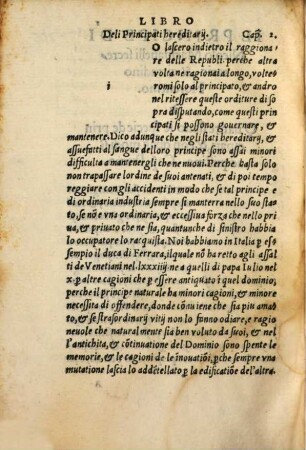 LIBRO
Deli Principati hereditarij. Cap. 2.
O lascero indietro il raggiona
re delle Republi. perche altra
volta ne ragionai a longo, volte
i
romi solo al principato, & andro
nel ritessere queste orditure di so
pra disputando, come questi prin
cipati si possono gouernare, &
mantenere. Dico adunque che negli stati hereditarij, &
assuefatti al sangue del loro principe sono assai minori
difficulta a mantenergli che ne nuoui. Perche basta solo
non trapassare lordine de suoi antenati, & di poi tempo
reggiare con gli accidenti in modo che se tal principe e
di ordinaria industria sempre si manterra nello suo sta
to, se nõ e vna ordinaria, & eccessiua forza che nello pri
ua, & priuato che ne sia, quantunche di sinistro habbia
lo occupatore lo racquista. Noi habbiamo in Italia p es
sempio il duca di Ferrara, il quale nõ ha retto agli assal
ti de Venetiani nel. lxxxiiij. ne a quelli di papa Iulio nel
x. p altre cagioni che p essere antiquato i quel dominio,
perche il principe naturale ha minori cagioni, & minore
necessita di offendere, donde cõuiene che sia piu amato
to, & se strasordinarij vitij non lo fanno odiare, e ragio
neuole che naturalmente sia ben voluto da suoi, & nel
l'antichita, & cõtinuatione del Dominio sono spente le
memorie, & le cagioni de le inouatiõi, pche sempre vna
mutatione lascia lo addẽtellato p la edificatiõe del'altra.